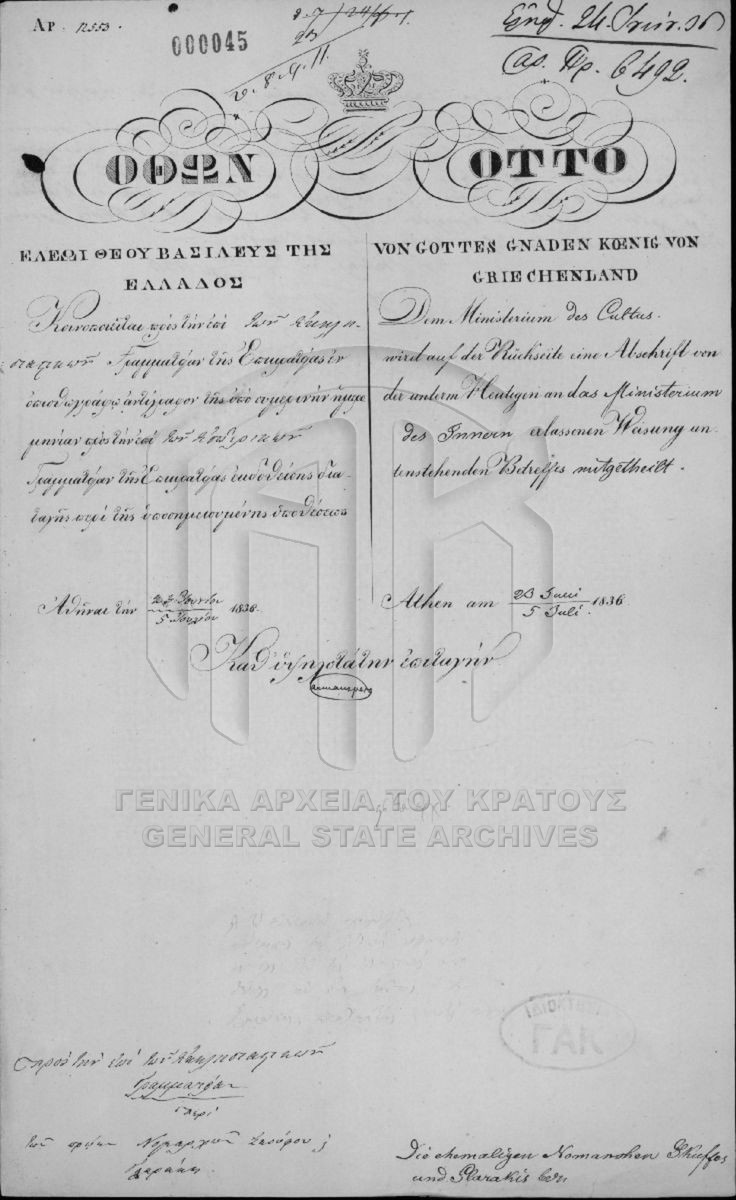 Αρ. 12553.
000045
24
23
Αρ. Πρ. 6492.
ΟΘΩΝ
ΕΛΕΩΙ ΘΕΟΥ ΒΑΣΙΛΕΥΣ ΤΗΣ
ΕΛΛΑΔΟΣ
Κοινοποιεῖται πρὸς τὴν ἐπὶ τῶν ἐκκλη-
σιαστικῶν Γραμματείαν τῆς Ἐπικρατείας ἐν
ὀπισθογράφῳ ἀντίγραφον τῆς ὑπὸ σημερινὴν ἡμερο
μηνίαν πρὸς τὴν ἐπὶ τῶν ἐσωτερικῶν
Γραμματείαν τῆς Ἐπικρατείας ἐκδοθείσης δια-
ταγῆς περὶ τῆς ὑποσημειουμένης ὑποθέσεως
Ἀθῆναι τὴν 23 Ἰουνίου / 5 Ἰουλίου 1836.
OTTO
VON GOTTES GNADEN KŒNIG VON
GRIECHENLAND
Dem Ministerium des Cultus.
wird auf der Rückseite eine Abschrift von
der unterm Heutigen an das Ministerium
des Innern erlassenen Weisung un-
tenstehenden Betreffes mitgetheilt.
Athen am 23 Juni / 5 Juli 1836
Καθ' ὑψηλοτάτην ἐπιταγήν
ΓΕΝΙΚΑ ΑΡΧΕΙΑ ΤΟΥ ΚΡΑΤΟΥΣ
GENERAL STATE ARCHIVES
ΓΑΚ
Πρὸς τὴν ἐπὶ τῶν ἐκκλησιαστικῶν
Γραμματείαν
περὶ
τῶν πρώην Νομαρχῶν
Die ehemaligen Nomarchen
und